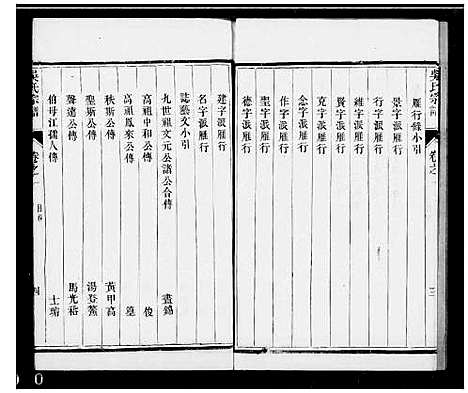 吳氏宗譜
卷之一
三
雁行錄小引
景字派雁行
行字派雁行
維字派雁行
賢字派雁行
克字派雁行
念字派雁行
作字派雁行
聖字派雁行
德字派雁行
建字派雁行
名字派雁行
誌藝文小引
九世祖文元公諸公合傳 盡錫
高祖中和公傳 俊
高祖鳳來公傳 篁
秩斯公傳 黃甲高
聖斯公傳 湯登鰲
聲遠公傳 馬光裕
伯母江孺人傳 士瑜
吳氏宗譜
卷之一
目錄
四
0 0